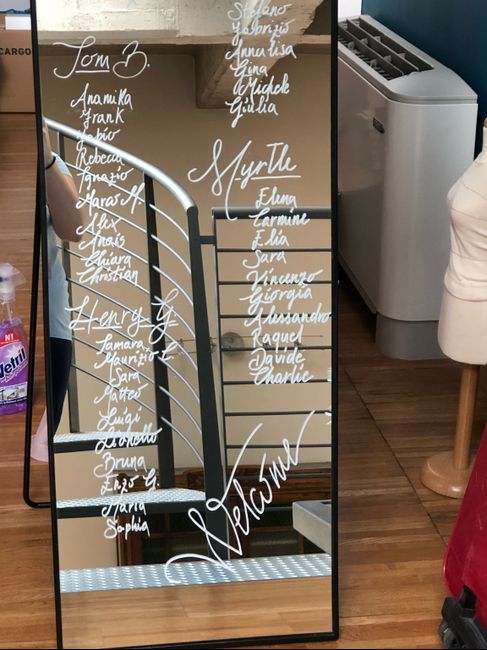 Tom B.
Anamika
Frank
Fabio
Rebeca
Ignazio
Maras M.
Alex
Anais
Chiara
Christian
Henry G.
Tamara
Maurizio C.
Sara
Matteo
Luigi
Lionello
Bruna
Enzo G.
Maria
Sophia
Stefano
Fabrizio
Annalisa
Gina
Michele
Giulia
Myrtle
Elena
Carmine
Elia
Sara
Vincenzo
Giorgia
Alessandro
Raquel
Davide
Charlie
Welcome
CARGO
N1
Vetril